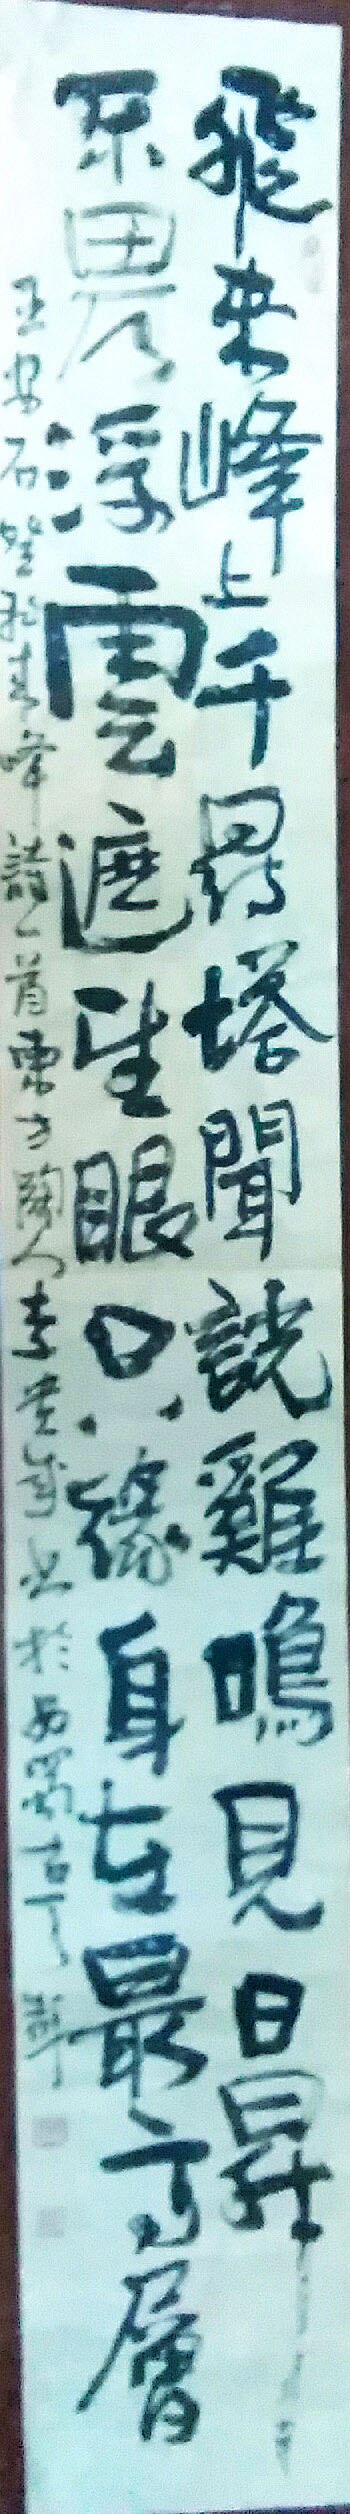 飛來峰上千尋塔聞說雞鳴見日昇
不畏浮雲遮望眼只緣身在最高層
王安石登飛來峰詩一首東方閣人李書於